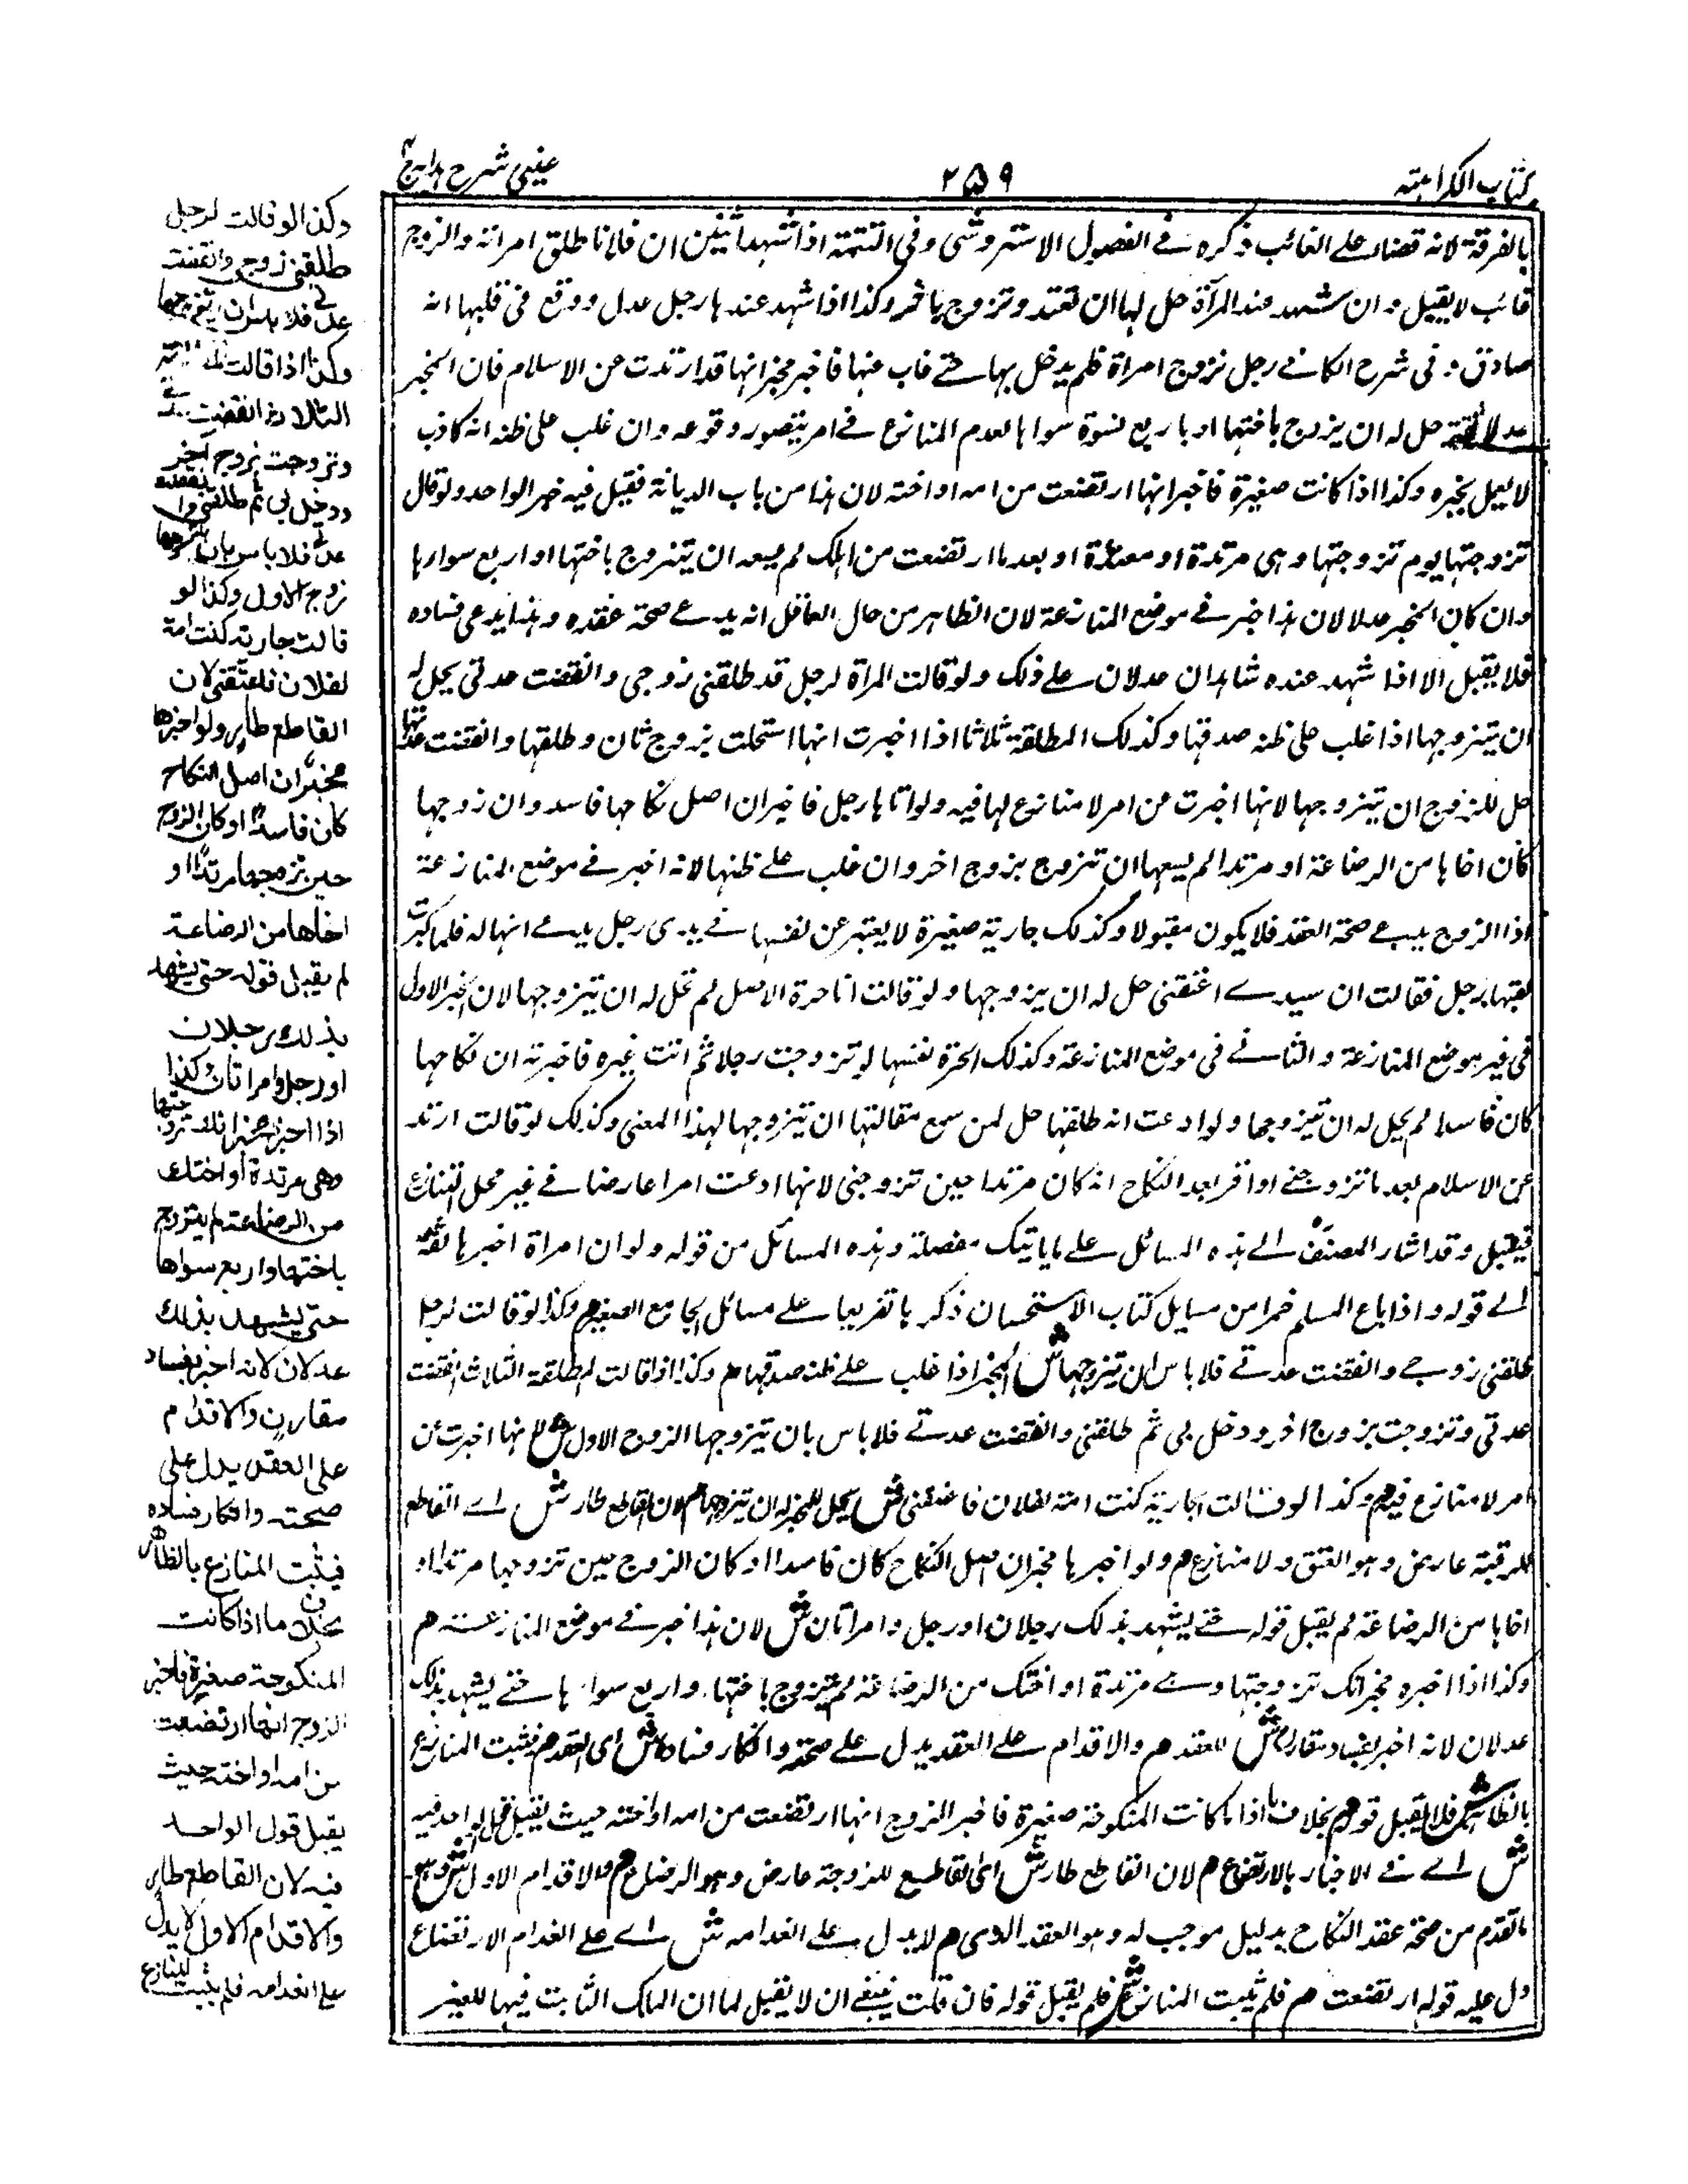 كتاب الكراهية
۲۵۹
عينى شرح هداية
بالفرقة لانه قضاء على الغائب ذكره فى الفصول الاستروشنى وفى التتمة اذا شهد اثنين ان فلانا طلق امراته والزوج
غائب لا يقبل وان شهد عند المرأة حل لها ان تعتد وتزوج باخر وكذا اذا شهد عندها رجل عدل ووقع فى قلبها انه
صادق وفى شرح الكافى رجل تزوج امراة فلم يدخل بها حتى غاب عنها فاخبر مخبر انها قد ارتدت عن الاسلام فان المخبر
حل له ان يزوج باختها او باربع نسوة سواها لعدم المنازع فى امر يتصور وقوعه وان غلب على ظنه انه كاذب
لا يعمل بخبره وكذا اذا كانت صغيرة فاخبر انها ارتضعت من امه او اخته لان هذا من باب الديانة فيقبل فيه خبر الواحد ولو قال
تزوجتها يوم تزوجتها وهى مرتدة او معتدة او بعد ما ارتضعت من امك لم يسعه ان يتزوج باختها او اربع سواها
وان كان المخبر عدلا لان هذا خبر فى موضع المنازعة لان الظاهر من حال العاقل انه يدعى صحة عقده وهذا يدعى فساده
فلا يقبل الا اذا شهد عنده شاهدان عدلان على ذلك ولو قالت المرأة لرجل قد طلقنى زوجى وانقضت عدتى يحل له
ان يتزوجها اذا غلب على ظنه صدقها وكذلك المطلقة ثلاثا اذا اخبرت انها استحلت بزوج ثان وطلقها وانقضت عدتها
حل للزوج ان يتزوجها لانها اخبرت عن امر لا منازع لها فيه ولو اتاها رجل فاخبر ان اصل نكاحها فاسد وان زوجها
كان اخاها من الرضاعة او مرتدا لم يسعها ان تتزوج بزوج اخر وان غلب على ظنها لانه اخبر فى موضع المنازعة
اذا الزوج يدعى صحة العقد فلا يكون مقبولا وكذلك جارية صغيرة لا يعتبر عن نفسها فى يدى رجل يدعى انها له فلما كبرت
لقيها رجل فقالت ان سيدى اعتقنى حل له ان يزوجها ولو قالت انا حرة الاصل لم تحل له ان يتزوجها لان الخبر الاول
فى غير موضع المنازعة والثانى فى موضع المنازعة وكذلك الحرة نفسها لو تزوجت رجلا ثم اتت غيره فاخبرته ان نكاحها
كان فاسدا لم يحل له ان يتزوجها ولو ادعت انه طلقها حل لمن سمع مقالتها ان يتزوجها لهذا المعنى وكذلك لو قالت ارتد
عن الاسلام بعد ما تزوجنى او اقر بعد النكاح انه كان مرتدا حين تزوجنى لانها ادعت امرا عارضا فى غير محل التنازع
فيقبل وقد اشار المصنف الى هذه المسائل على ما ياتيك مفصلة وهذه المسائل من قوله ولو ان امراة اخبرها ثقة
الى قوله واذا باع المسلم خمرا من مسايل كتاب الاستحسان ذكرها تفريعا على مسائل الجامع الصغير م وكذا لو قالت لرجل
طلقنى زوجى وانقضت عدتى فلا باس ان يتزوجها ش المخبر اذا غلب على ظنه صدقها م وكذا اذا قالت المطلقة الثلاث انقضت
عدتى وتزوجت بزوج اخر ودخل بى ثم طلقنى وانقضت عدتى فلا باس بان يتزوجها الزوج الاول ش لانها اخبرت عن
امر لا منازع فيه م وكذا لو قالت الجارية كنت امة لفلان فاعتقنى ش يحل للمخبر له ان يتزوجها م لان القاطع طار ش اى القاطع
للرقبة عارض وهو العتق ولا منازع م ولو اخبرها مخبر ان اصل النكاح كان فاسدا او كان الزوج حين تزوجها مرتدا او
اخاها من الرضاعة لم يقبل قوله حتى يشهد بذلك رجلان او رجل وامراتان ش لان هذا خبر فى موضع المنازعة م
وكذا اذا اخبره مخبر انك تزوجتها وهى مرتدة او اختك من الرضاعة لم يتزوج باختها واربع سواها حتى يشهد بذلك
عدلان لانه اخبر بفساد مقارن ش للعقد م والاقدام على العقد يدل على صحته وانكار فساده ش اى العقد م فيثبت المنازع
بالظاهر ش فلا يقبل قوله م بخلاف ما اذا كانت المنكوحة صغيرة فاخبر الزوج انها ارتضعت من امه او اخته حيث يقبل قول الواحد فيه
ش اى فى الاخبار بالارتضاع م لان القاطع طار ش اى القاطع للزوجة عارض وهو الرضاع م والاقدام الاول ش وهو
ما تقدم من صحة عقد النكاح بدليل موجب له وهو العقد الذى م لا يدل على انعدامه ش اى على انعدام الارتضاع
دل عليه قوله ارتضعت م فلم يثبت المنازع ش فلم يقبل قوله فان قلت ينبغى ان لا يقبل لما ان الملك الثابت فيها للغير
وكذا لو قالت لرجل
طلقنى زوجى وانقضت
عدتى فلا باس ان يتزوجها
وكذا اذا قالت المطلقة
الثلاث انقضت عدتى
وتزوجت بزوج آخر
ودخل بى ثم طلقنى وانقضت
عدتى فلا باس بان يتزوجها
زوج الاول وكذا لو
قالت جارية كنت امة
لفلان فاعتقنى لان
القاطع طار ولو اخبرها
مخبر ان اصل النكاح
كان فاسدا او كان الزوج
حين تزوجها مرتدا او
اخاها من الرضاعة
لم يقبل قوله حتى يشهد
بذلك رجلان
او رجل وامراتان وكذا
اذا اخبره مخبر انك تزوجتها
وهى مرتدة او اختك
من الرضاعة لم يتزوج
باختها واربع سواها
حتى يشهد بذلك
عدلان لانه اخبر بفساد
مقارن والاقدام
على العقد يدل على
صحته وانكار فساده
فيثبت المنازع بالظاهر
بخلاف ما اذا كانت
المنكوحة صغيرة فاخبر
الزوج انها ارتضعت
من امه او اخته حيث
يقبل قول الواحد
فيه لان القاطع طار
والاقدام الاول لا يدل
على انعدامه فلم يثبت المنازع